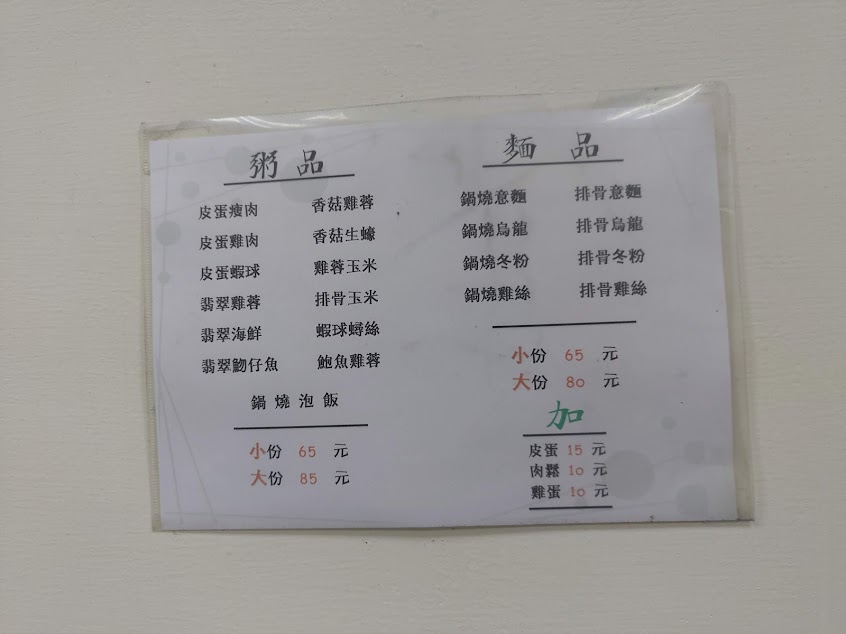 粥品
皮蛋瘦肉 香菇雞蓉
皮蛋雞肉 香菇生蠔
皮蛋蝦球 雞蓉玉米
翡翠雞蓉 排骨玉米
翡翠海鮮 蝦球蟳絲
翡翠魩仔魚 鮑魚雞蓉
鍋燒泡飯
小份 65 元
大份 85 元
麵品
鍋燒意麵 排骨意麵
鍋燒烏龍 排骨烏龍
鍋燒冬粉 排骨冬粉
鍋燒雞絲 排骨雞絲
小份 65 元
大份 80 元
加
皮蛋 15 元
肉鬆 10 元
雞蛋 10 元